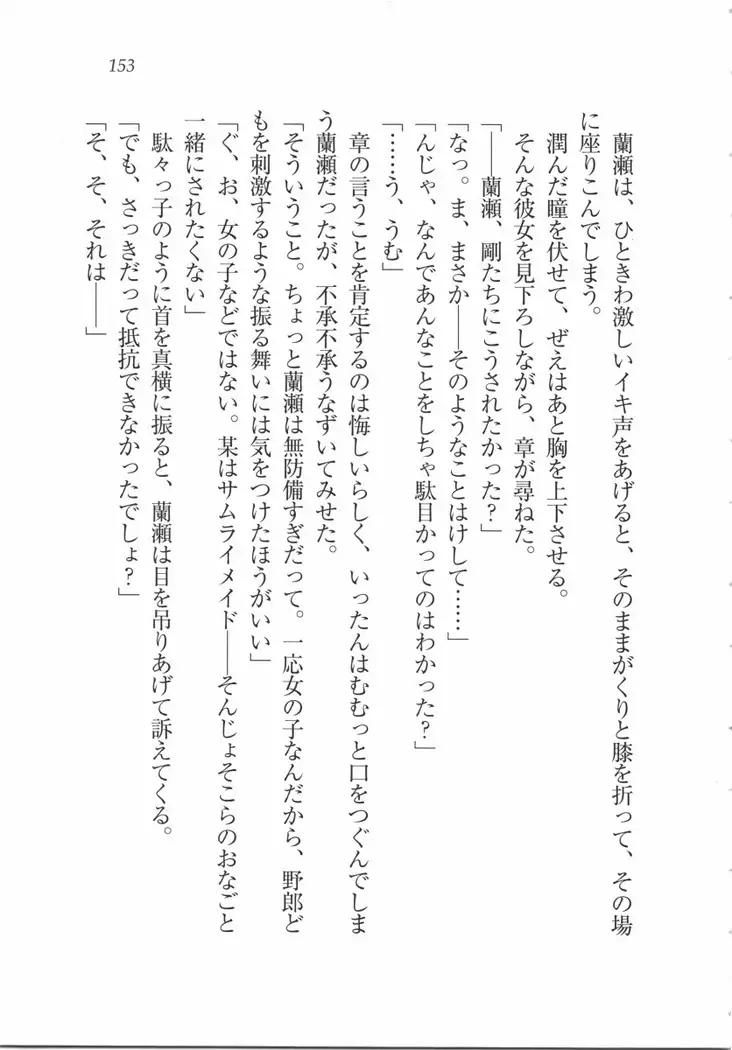 153
蘭瀬は、ひときわ激しいイキ声をあげると、そのままがくりと膝を折って、その場
に座りこんでしまう。
潤んだ瞳を伏せて、ぜえはあと胸を上下させる。
そんな彼女を見下ろしながら、章が尋ねた。
「――蘭瀬、剛たちにこうされたかった？」
「なっ。ま、まさか――そのようなことはけして……」
「んじゃ、なんであんなことをしちゃ駄目かってのはわかった？」
「……う、うむ」
章の言うことを肯定するのは悔しいらしく、いったんはむむっと口をつぐんでしま
う蘭瀬だったが、不承不承うなずいてみせた。
「そういうこと。ちょっと蘭瀬は無防備すぎだって。一応女の子なんだから、野郎ど
もを刺激するような振る舞いには気をつけたほうがいい」
「ぐ、お、女の子などではない。某はサムライメイド――そんじょそこらのおなごと
一緒にされたくない」
駄々っ子のように首を真横に振ると、蘭瀬は目を吊りあげて訴えてくる。
「でも、さっきだって抵抗できなかったでしょ？」
「そ、そ、それは――」